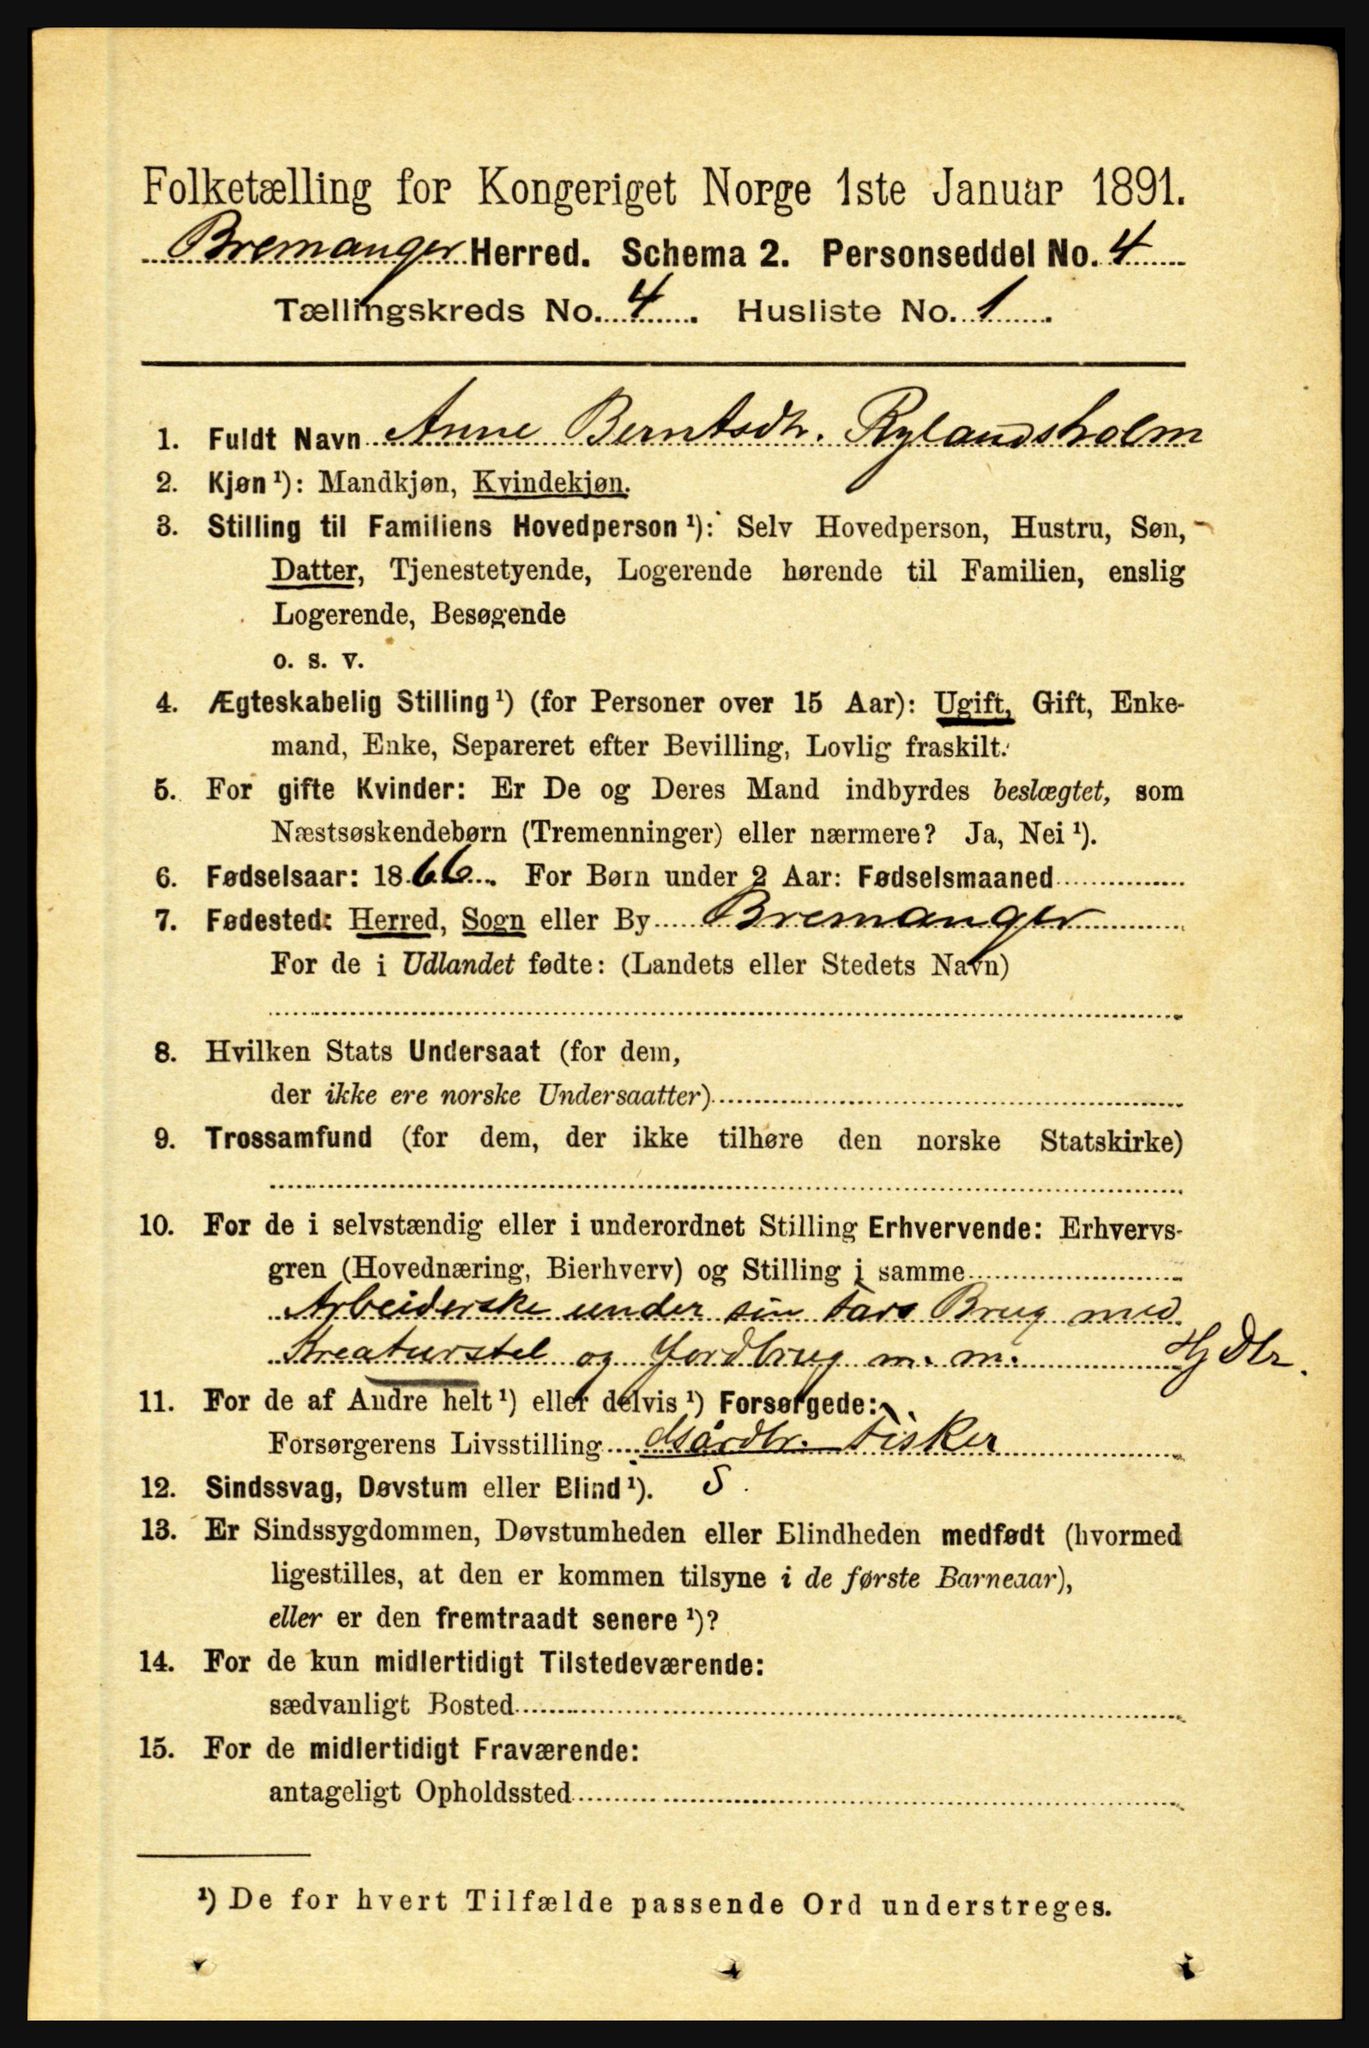 Folketælling for Kongeriget Norge 1ste Januar 1891.
Bremanger Herred. Schema 2. Personseddel No. 4
Tællingskreds No. 4. Husliste No. 1.
1. Fuldt Navn Anne Berntsdtr. Rylandsholm
2. Kjøn ¹): Mandkjøn, Kvindekjøn.
3. Stilling til Familiens Hovedperson ¹): Selv Hovedperson, Hustru, Søn,
Datter, Tjenestetyende, Logerende hørende til Familien, enslig
Logerende, Besøgende
o. s. v.
4. Ægteskabelig Stilling ¹) (for Personer over 15 Aar): Ugift, Gift, Enke-
mand, Enke, Separeret efter Bevilling, Lovlig fraskilt.
5. For gifte Kvinder: Er De og Deres Mand indbyrdes beslægtet, som
Næstsøskendebørn (Tremenninger) eller nærmere? Ja, Nei ¹).
6. Fødselsaar: 1866. For Børn under 2 Aar: Fødselsmaaned
7. Fødested: Herred, Sogn eller By Bremanger
For de i Udlandet fødte: (Landets eller Stedets Navn)
8. Hvilken Stats Undersaat (for dem,
der ikke ere norske Undersaatter)
9. Trossamfund (for dem, der ikke tilhøre den norske Statskirke)
10. For de i selvstændig eller i underordnet Stilling Erhvervende: Erhvervs-
gren (Hovednæring, Bierhverv) og Stilling i samme
Arbeiderske under sin Fars Brug med
Kreaturstel og Jordbrug m. m. Hj Dtr.
11. For de af Andre helt ¹) eller delvis ¹) Forsørgede:
Forsørgerens Livsstilling Gårdbr. Fisker
12. Sindssvag, Døvstum eller Blind ¹). S.
13. Er Sindssygdommen, Døvstumheden eller Blindheden medfødt (hvormed
ligestilles, at den er kommen tilsyne i de første Barneaar),
eller er den fremtraadt senere ¹)?
14. For de kun midlertidigt Tilstedeværende:
sædvanligt Bosted
15. For de midlertidigt Fraværende:
antageligt Opholdssted
¹) De for hvert Tilfælde passende Ord understreges.